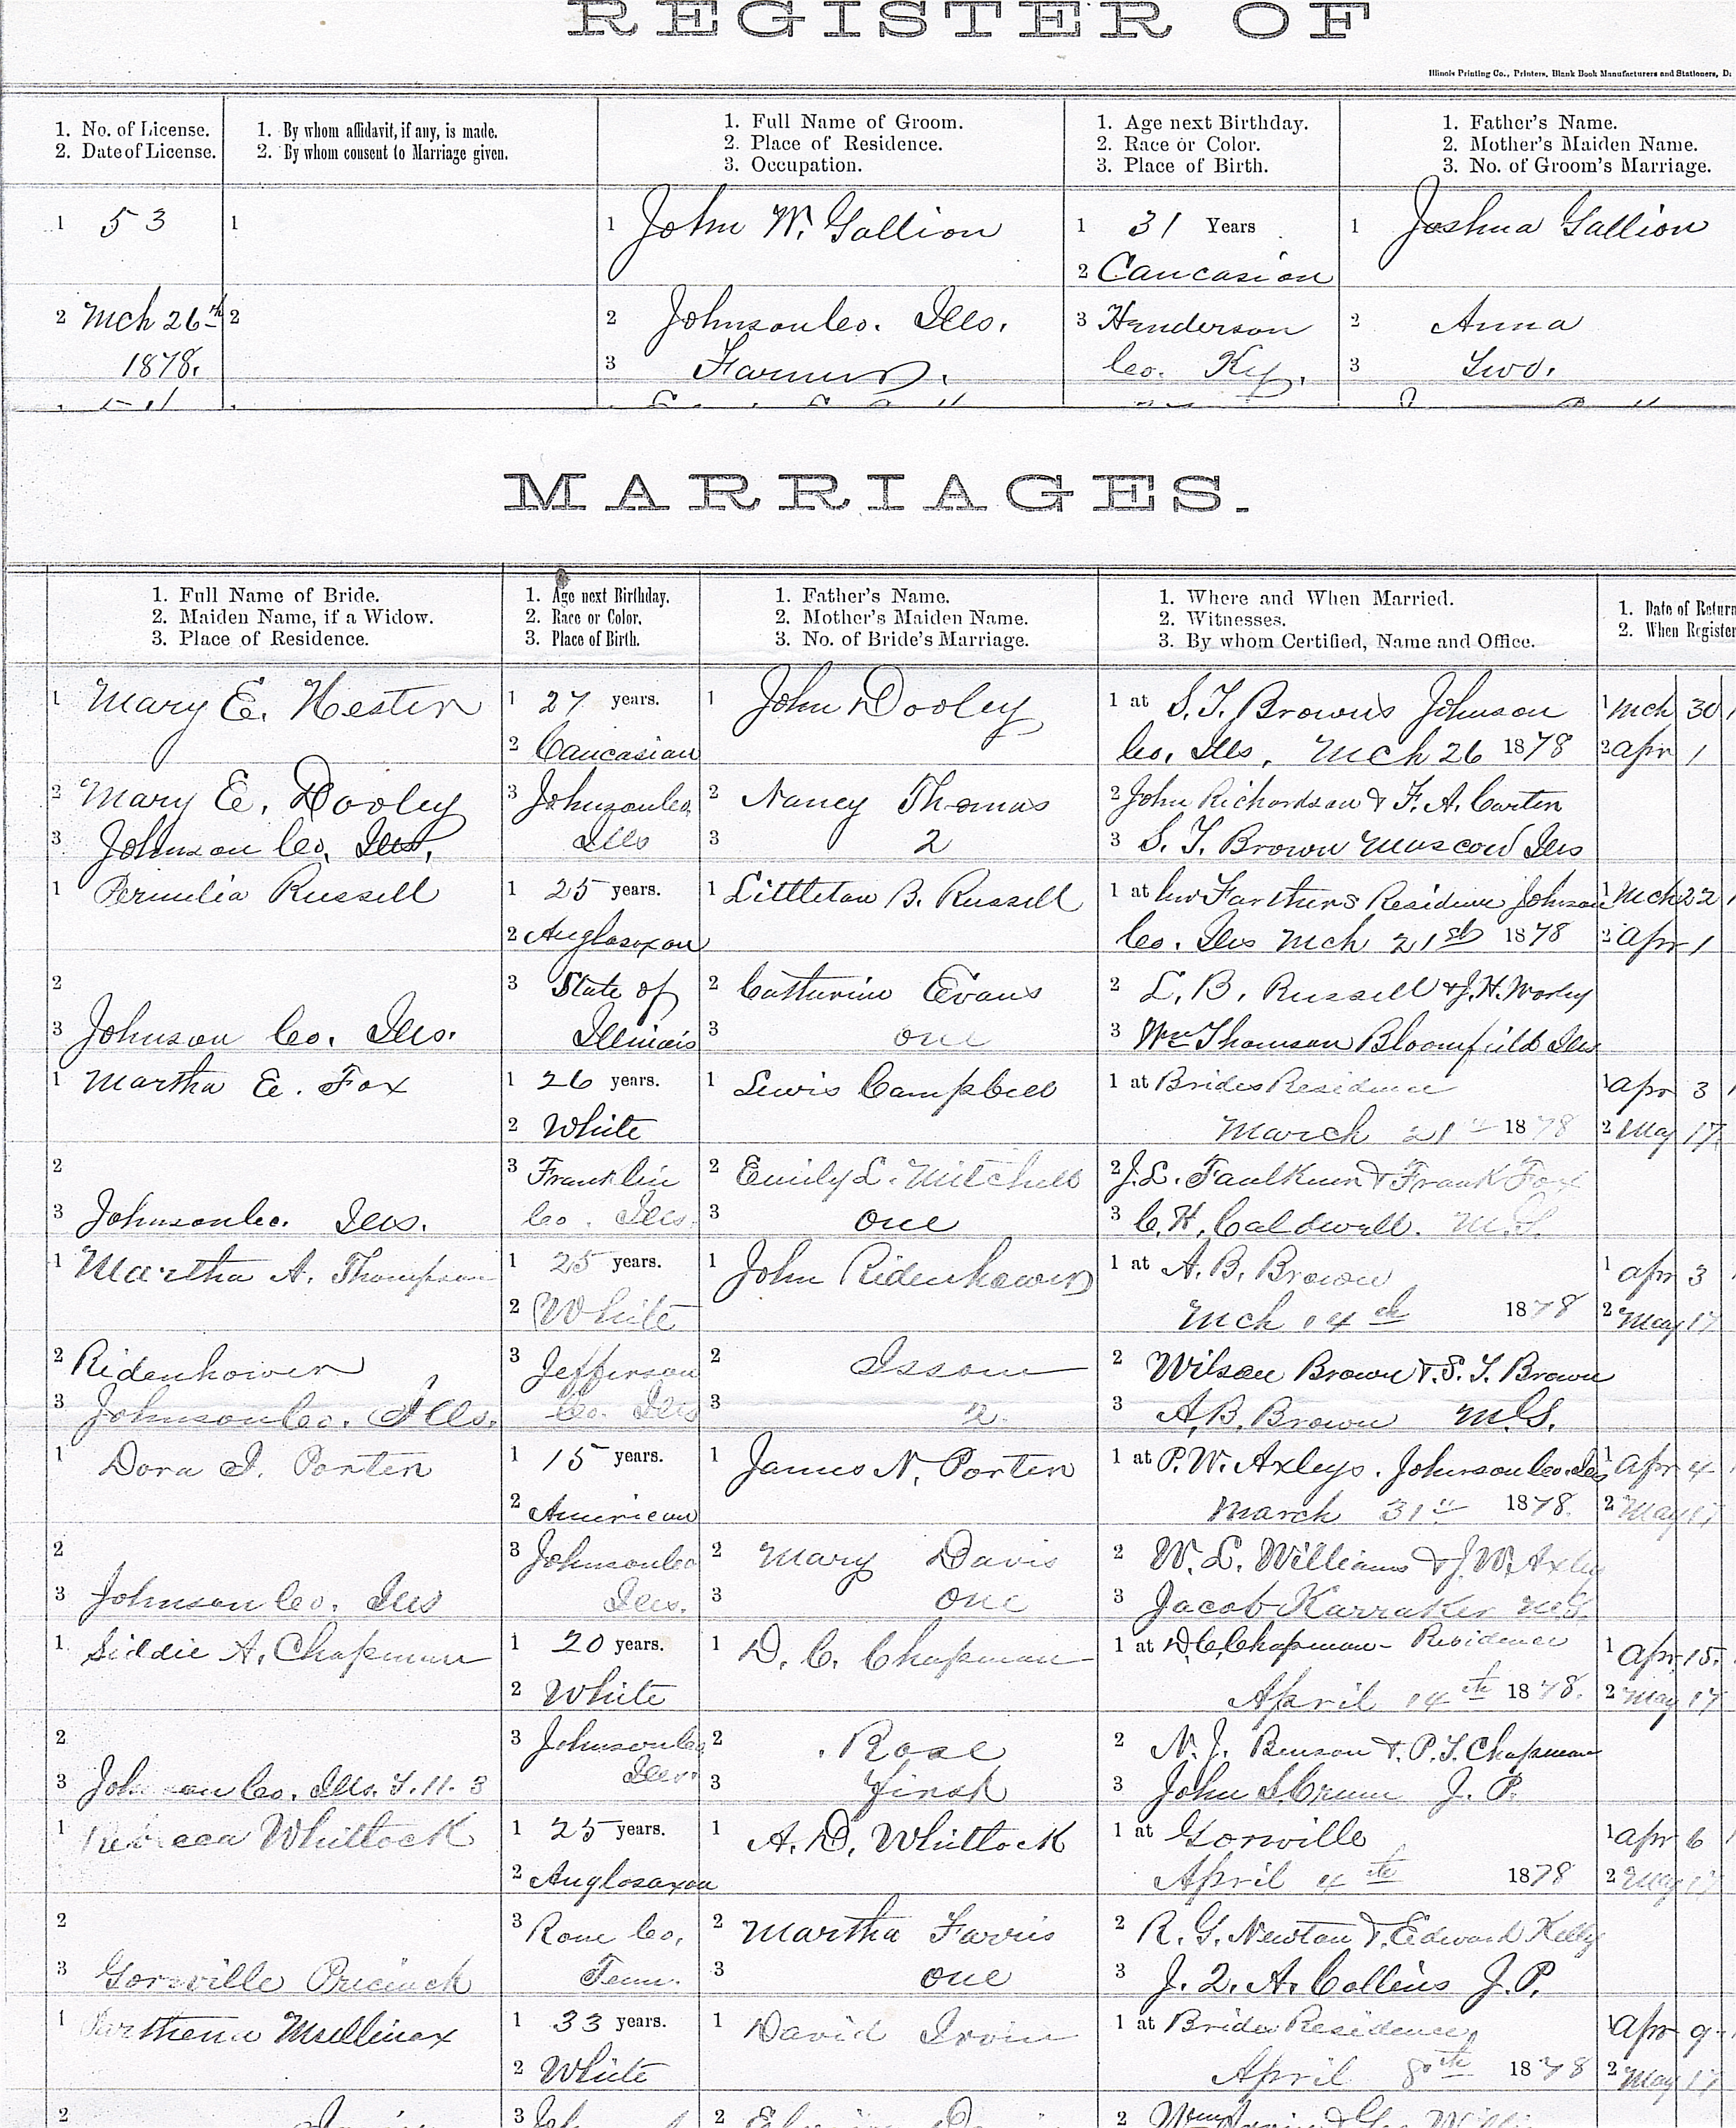 REGISTER OF
Illinois Printing Co., Printers, Blank Book Manufacturers and Stationers, D
1. No. of License.
2. Date of License.
1. By whom affidavit, if any, is made.
2. By whom consent to Marriage given.
1. Full Name of Groom.
2. Place of Residence.
3. Occupation.
1. Age next Birthday.
2. Race or Color.
3. Place of Birth.
1. Father's Name.
2. Mother's Maiden Name.
3. No. of Groom's Marriage.
1 53
2 Mch 26th
1878.
1
2
1 John W. Gallion
2 Johnson Co. Ills.
3 Farmer.
1 31 Years
2 Caucasian
3 Henderson
Co. Ky.
1 Joshua Gallion
2 Anna
3 Two.
MARRIAGES.
1. Full Name of Bride.
2. Maiden Name, if a Widow.
3. Place of Residence.
1. Age next Birthday.
2. Race or Color.
3. Place of Birth.
1. Father's Name.
2. Mother's Maiden Name.
3. No. of Bride's Marriage.
1. Where and When Married.
2. Witnesses.
3. By whom Certified, Name and Office.
1. Date of Return
2. When Register
1 Mary E. Hester
2 Mary E. Dooley
3 Johnson Co. Ills.
1 27 years.
2 Caucasian
3 Johnson Co.
Ills
1 John Dooley
2 Nancy Thomas
3 2
1 at S. T. Browns Johnson
Co. Ills, Mch 26 1878
2 John Richardson & F. A. Carter
3 S. T. Brown Moscow Ills
1 Mch 30
2 Apr 1
1 Permelia Russell
2
3 Johnson Co. Ills.
1 25 years.
2 Anglosaxon
3 State of
Illinois
1 Littleton B. Russell
2 Catturine Evans
3 one
1 at her Farthers Residence Johnson
Co. Ills Mch 21st 1878
2 L. B. Russell & J. H. Worley
3 Wm Thomson Bloomfield Ills
1 Mch 22
2 Apr 1
1 Martha E. Fox
2
3 Johnson Co. Ills.
1 26 years.
2 White
3 Franklin
Co. Ills.
1 Lewis Campbell
2 Emily L. Mitchell
3 one
1 at Brides Residence
March 21 1878
2 J. L. Faulkner & Frank Fox
3 C. H. Caldwell. M.G.
1 Apr 3
2 May 17
1 Martha A. Thompson
2 Ridenhower
3 Johnson Co. Ills.
1 25 years.
2 White
3 Jefferson
Co. Ills
1 John Ridenhower
2 Issom
3 2.
1 at A. B. Brown
Mch 14th 1878
2 Wilson Brown & S. T. Brown
3 A. B. Brown M.G.
1 Apr 3
2 May 17
1 Dora I. Porter
2
3 Johnson Co. Ills
1 15 years.
2 American
3 Johnson Co
Ills.
1 James N. Porter
2 Mary Davis
3 one
1 at P. W. Axleys. Johnson Co. Ills
March 31st 1878.
2 W. L. Williams & J. W. Axley
3 Jacob Karraker M.G.
1 Apr 4
2 May 17
1 Siddie A. Chapman
2
3 Johnson Co. Ills. T. 11. 3
1 20 years.
2 White
3 Johnson Co
Ills.
1 D. C. Chapman
2 Rose
3 first
1 at D. C. Chapman Residence
April 14th 1878.
2 N. J. Benson & P. T. Chapman
3 John S. Crum J. P.
1 Apr. 15.
2 May 17
1 Rebecca Whittock
2
3 Goreville Precinct
1 25 years.
2 Anglosaxon
3 Rone Co.
Tenn.
1 A. D. Whittock
2 Martha Farris
3 one
1 at Gorville
April 4th 1878
2 R. G. Newton & Edward Kelly
3 J. Q. A. Collins J. P.
1 Apr 6
2 May 17
1 Parthena Mullinax
2
1 33 years.
2 White
3
1 David Irvin
2
1 at Brides Residence
April 8th 1878
2
1 Apr 9
2 May 17